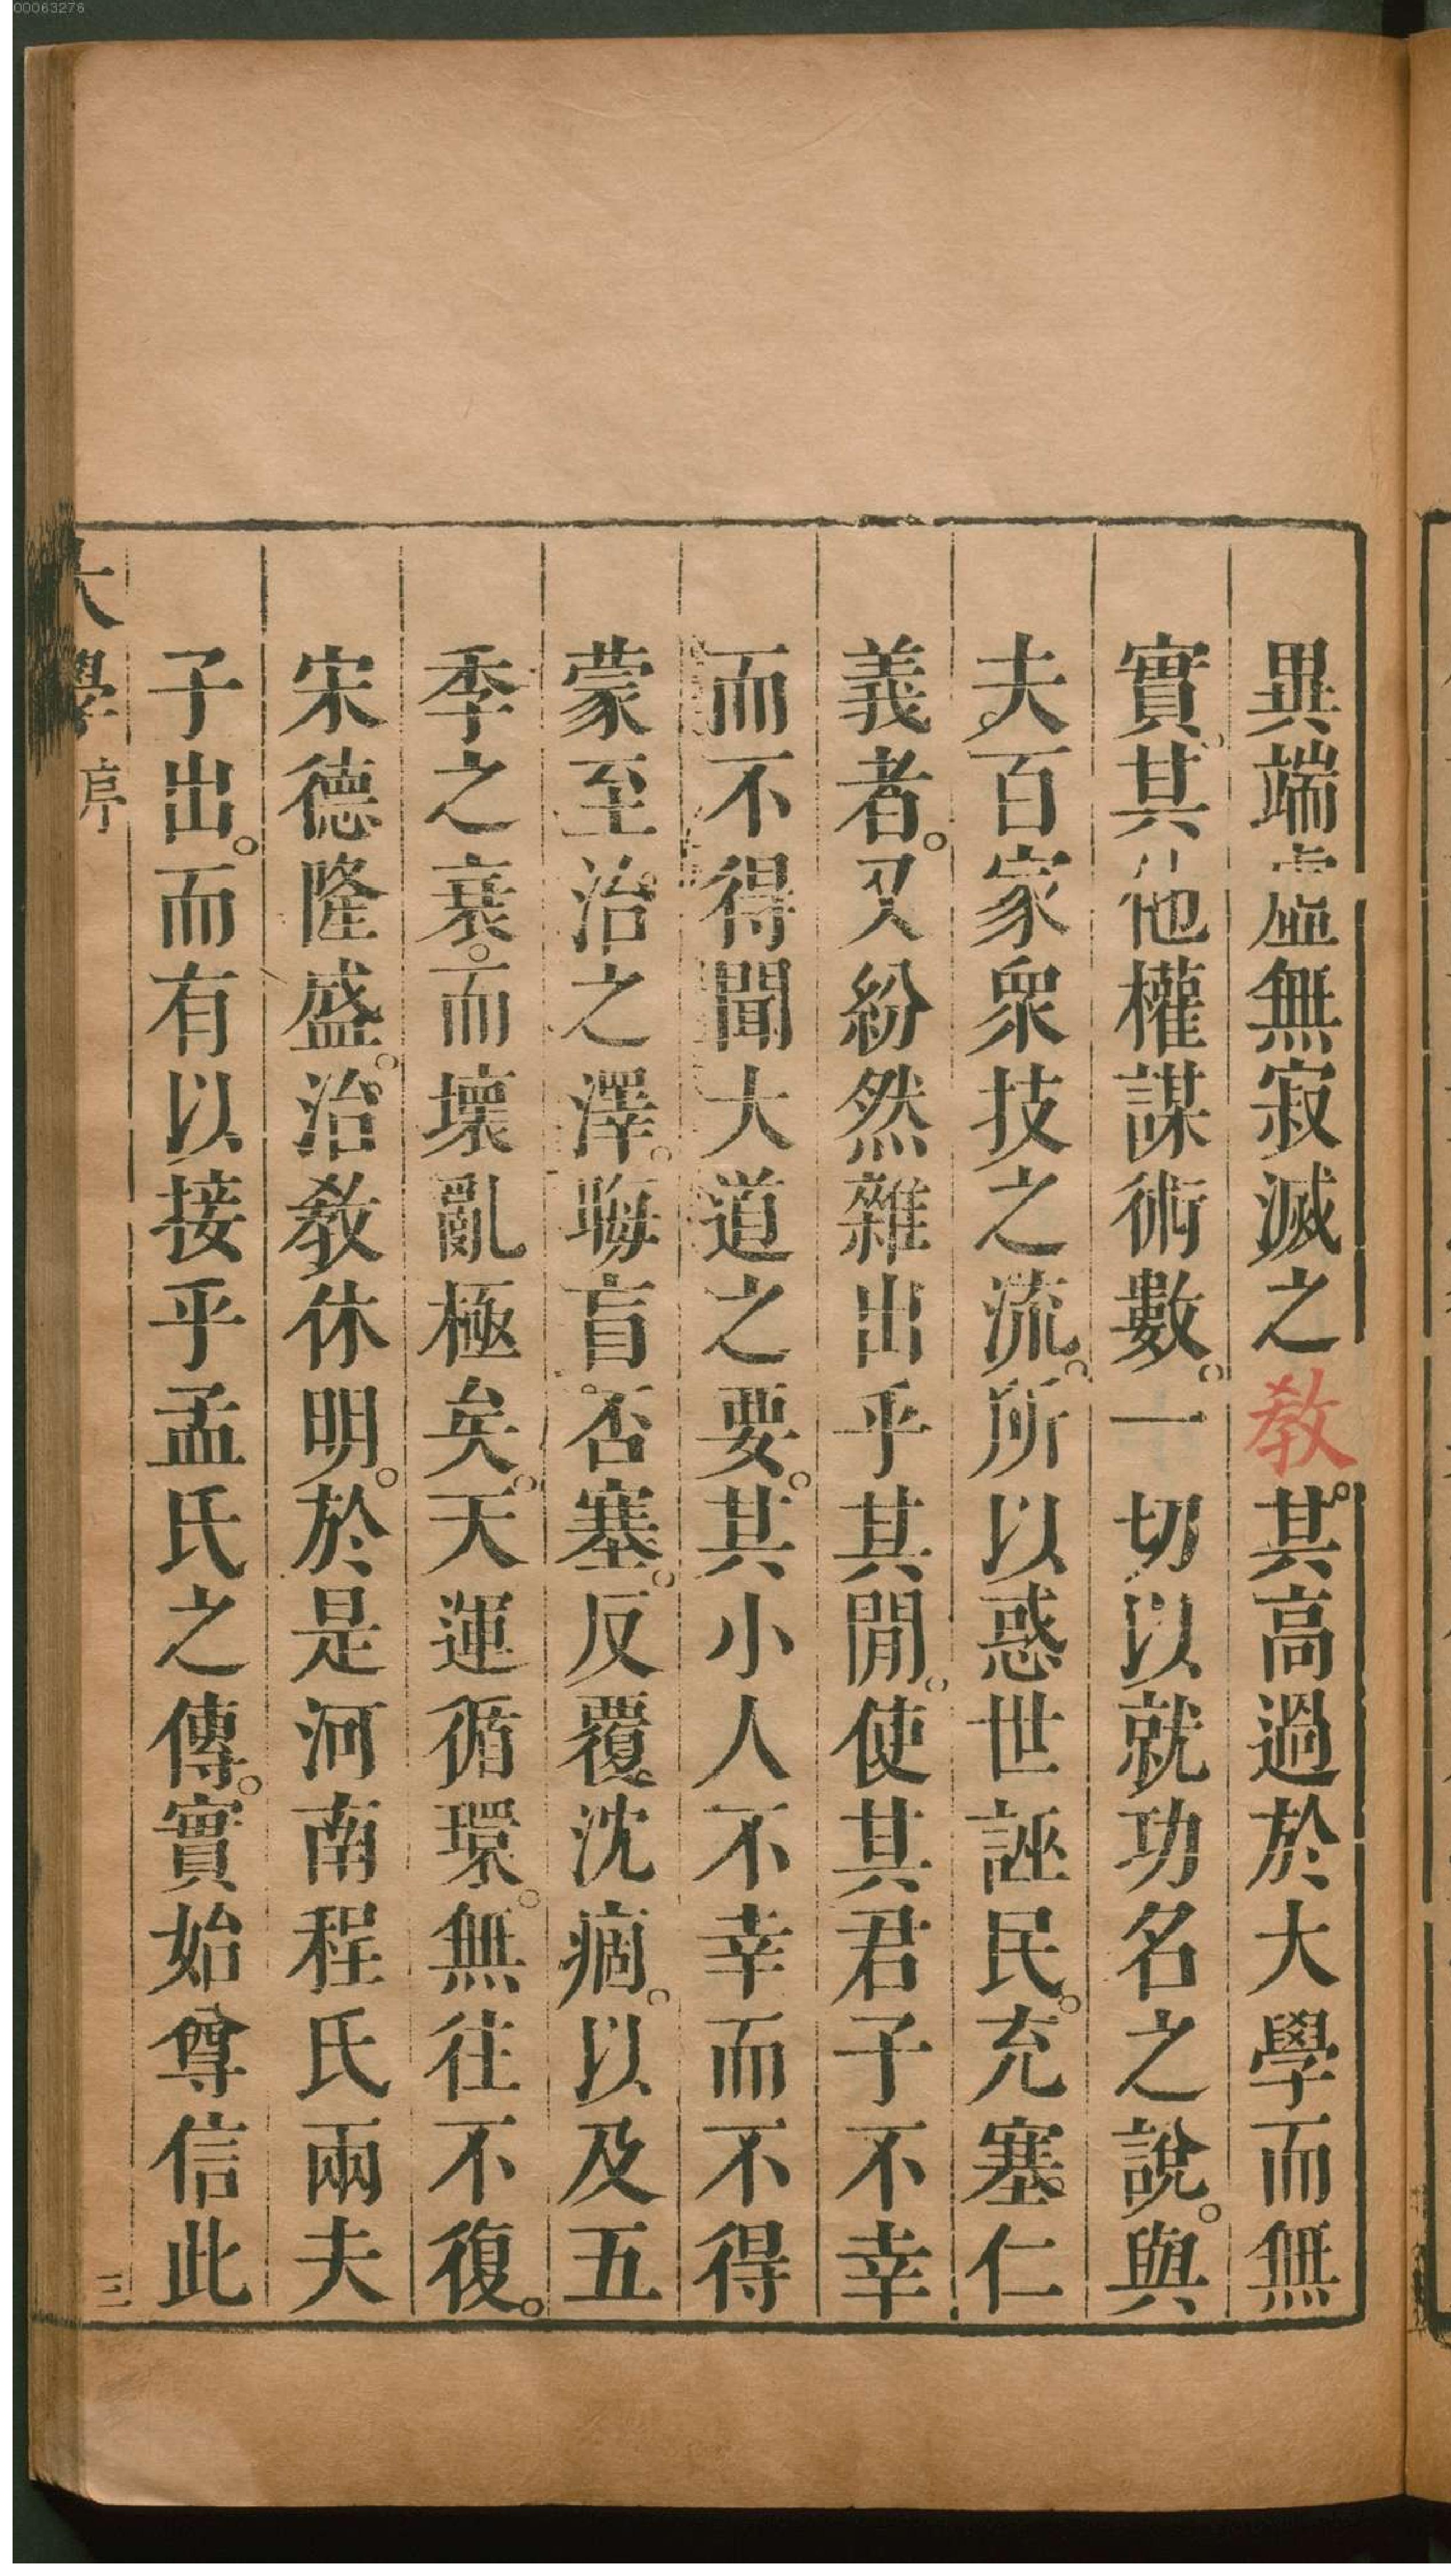 00063276
異端虛無寂滅之教。其高過於大學而無
實。其他權謀術數。一切以就功名之說。與
夫百家衆技之流。所以惑世誣民。充塞仁
義者。又紛然雜出乎其閒。使其君子不幸
而不得聞大道之要。其小人不幸而不得
蒙至治之澤。晦盲否塞。反覆沈痼。以及五
季之衰。而壞亂極矣。天運循環。無往不復。
宋德隆盛。治教休明。於是河南程氏兩夫
子出。而有以接乎孟氏之傳。實始尊信此
大學序 三